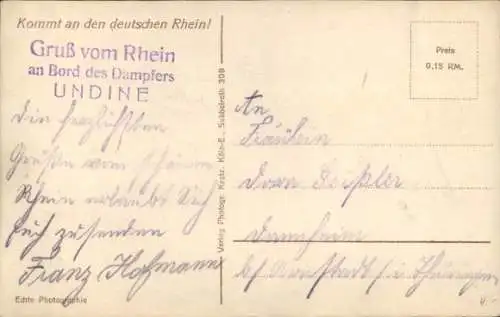 Kommt an den deutschen Rhein!
Gruß vom Rhein
an Bord des Dampfers
UNDINE
Die herzlichsten
Grüße vom schönen
Rhein erlaubt Sich
Euch zu senden
Franz Hofmann
Echte Photographie
Verlag Photogr. Kratz, Köln-E., Subbelratb 309
Preis
0,15 RM.
An
Fräulein
Dora
Dannheim
bei Arnstadt i/ Thüringen